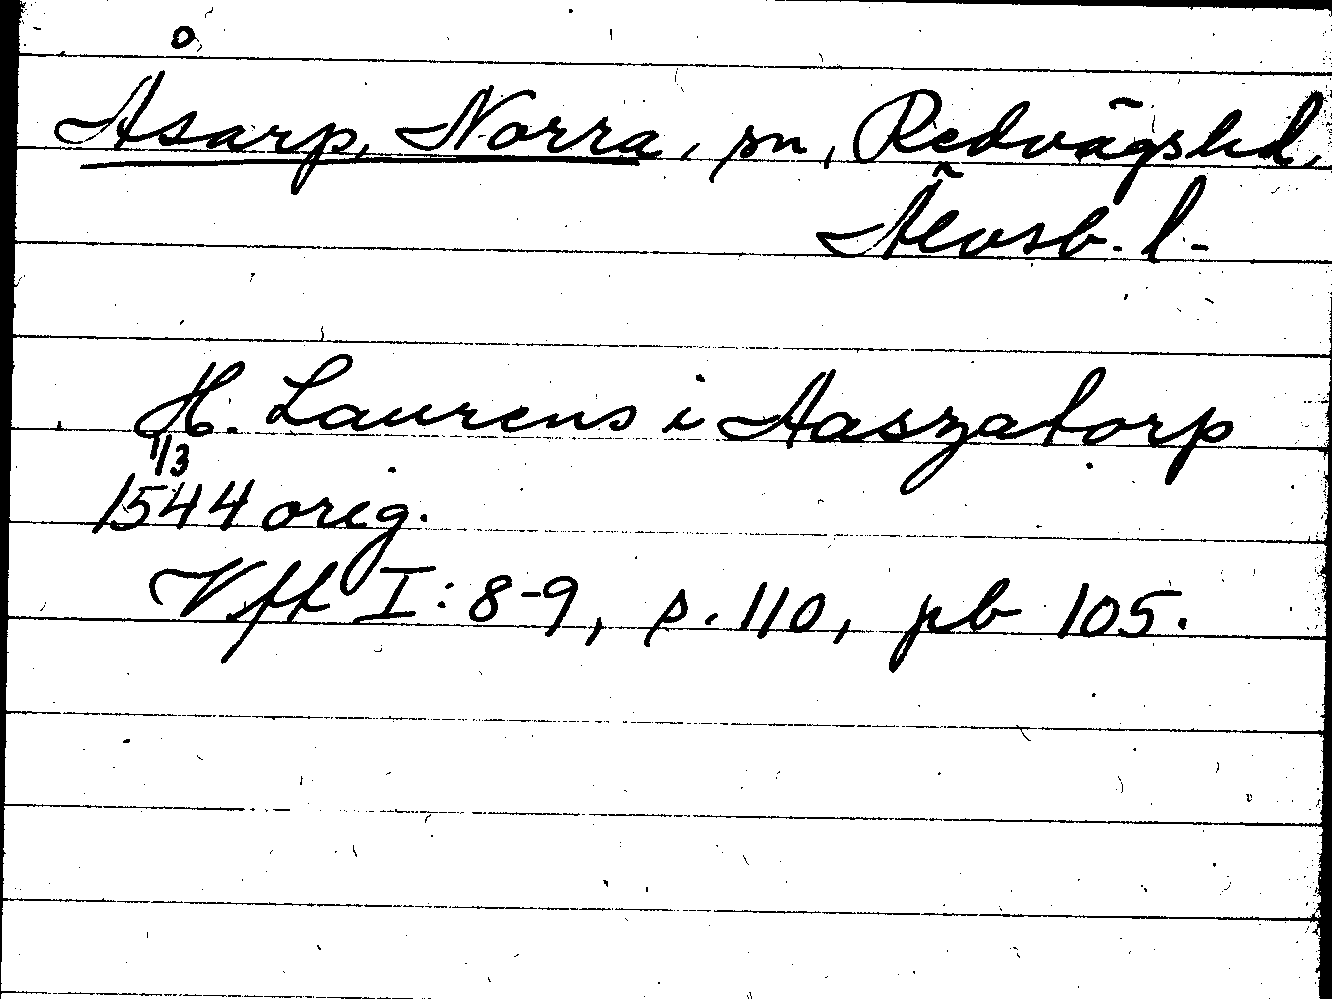 Åsarp, Norra, sn, Redvägs hd,
Älvsb. l.
H. Laurens i Aaszatorp
1/3
1544 orig.
Vff I: 8-9, p. 110, pb 105.